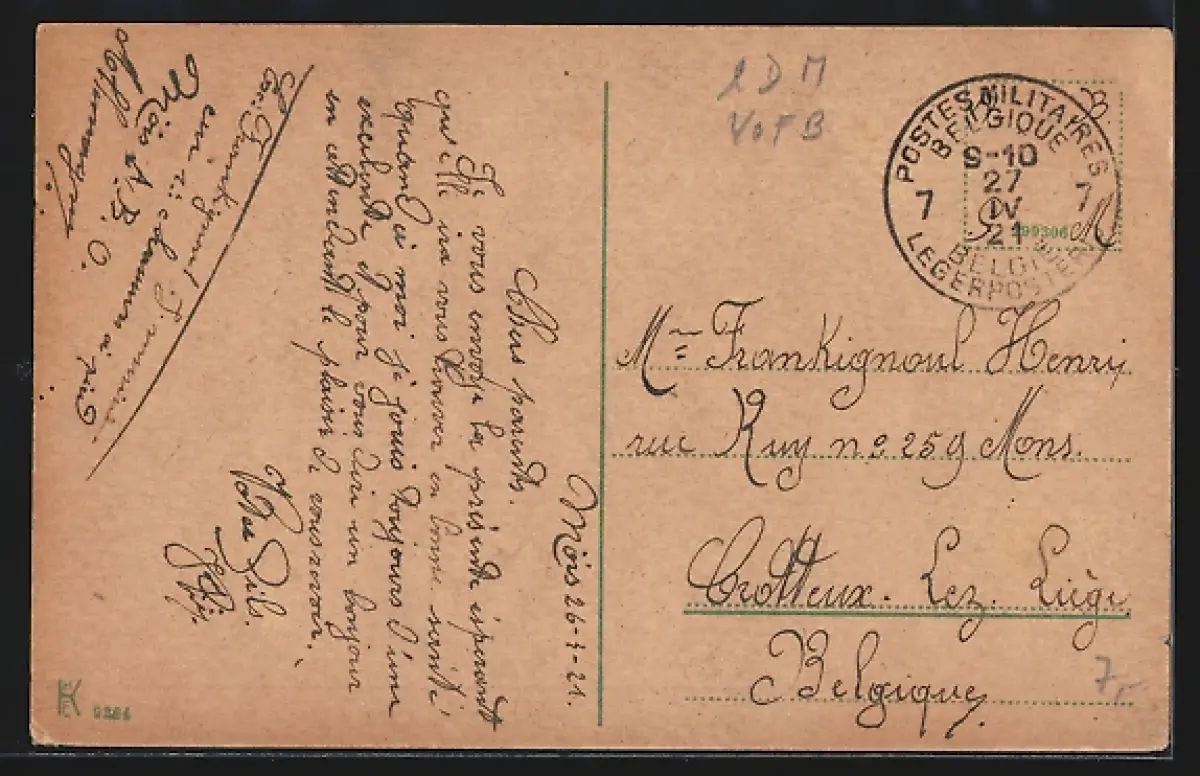 Mörs 26-4-21.
Chers parents.
Je vous envoye la présente espérant
que elle ira vous trouver en bonne santé
quand à moi je jouis toujours d'une
excelente et pour vous dire un bonjour
en attendant le plaisir de vous revoir.
Votre fils.
Exp: Frankignoul
en 11e à pied
Mörs A. B. O.
Allemagne
l D M
VoF B
POSTES MILITAIRES
BELGIQUE
9-10
27
IV
21
7 7
BELGIE
LEGERPOSTERIJ
S. B.
S. M
99306
Mr Frankignoul Henry
rue Ruy no 259 Mons.
Crotteux. Lez. Liège
Belgique
7,-
9384